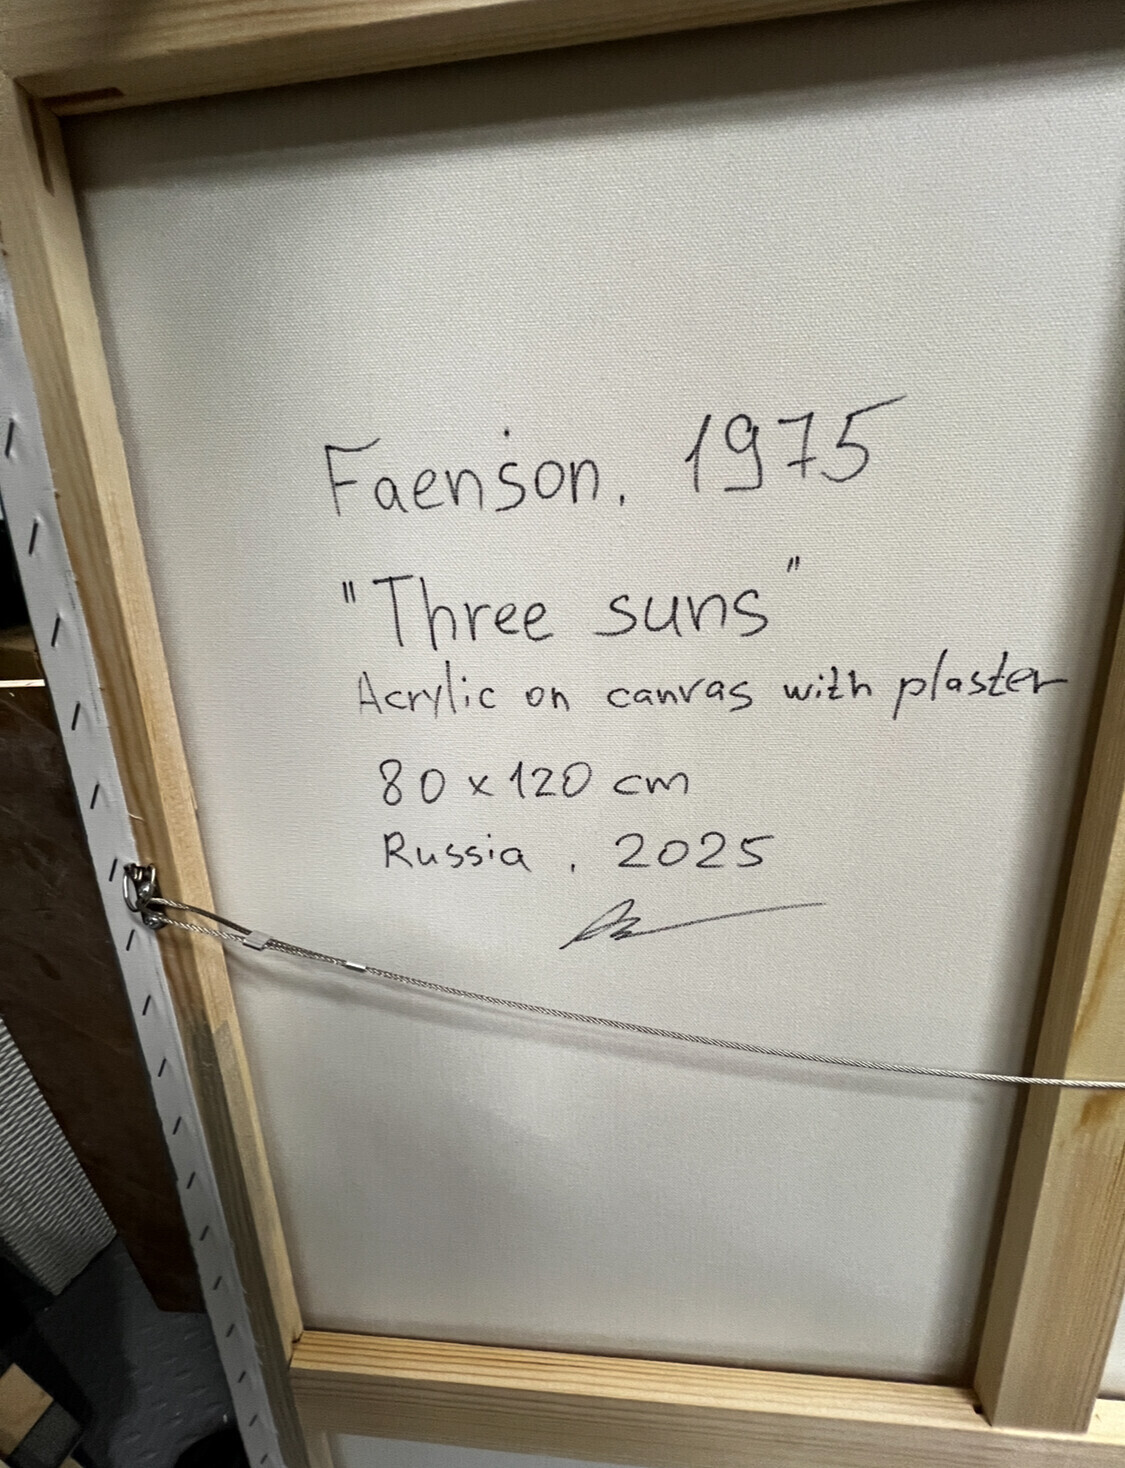 Faenson. 1975
"Three suns"
Acrylic on canvas with plaster
80 x 120 cm
Russia, 2025